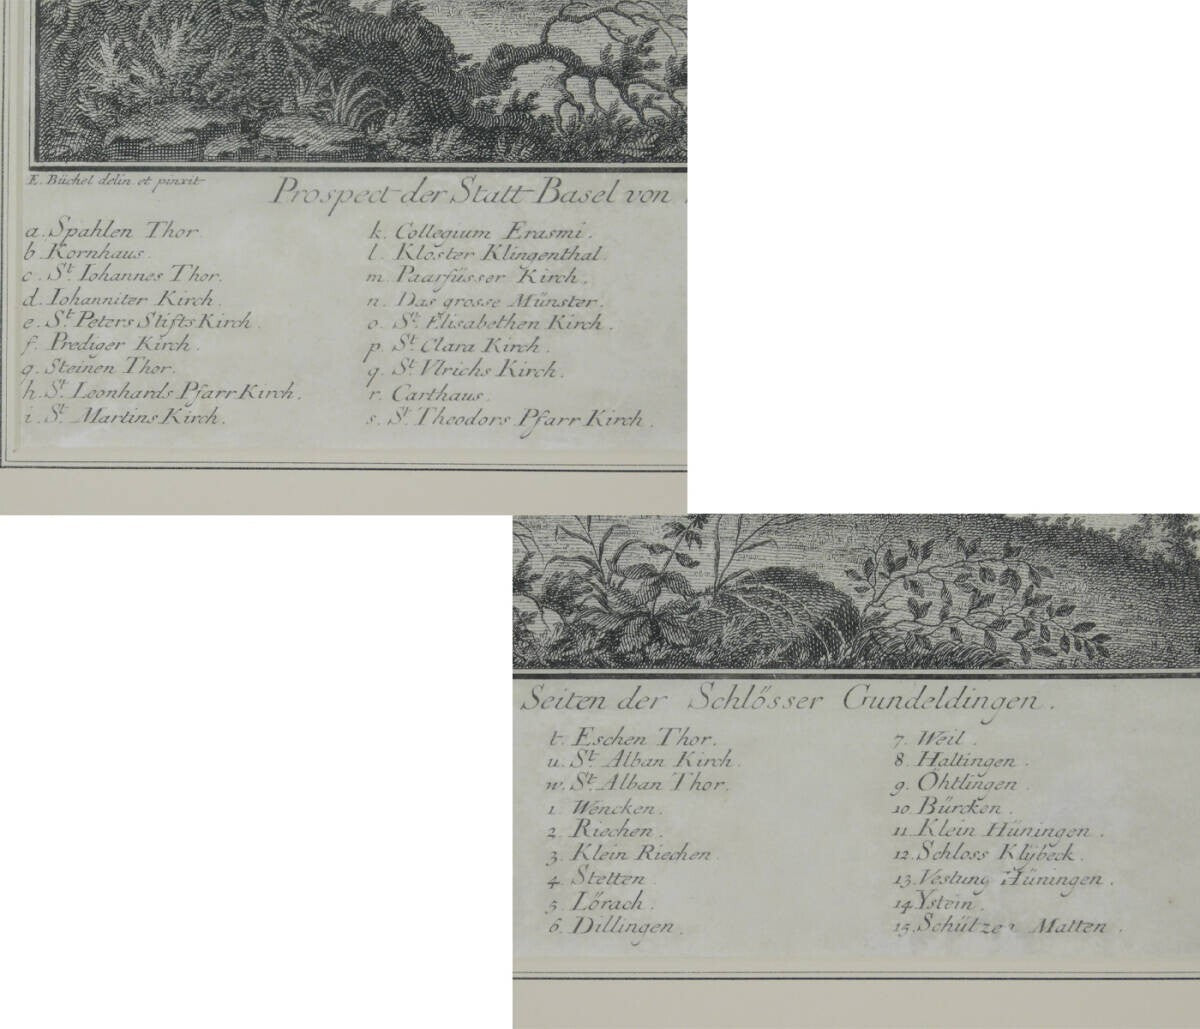 E. Büchel delin. et pinxit
Prospect der Statt Basel von
a. Spahlen Thor.
b. Kornhaus.
c. St. Iohannes Thor.
d. Iohanniter Kirch.
e. St. Peters Stifts Kirch.
f. Prediger Kirch.
g. Steinen Thor.
h. St. Leonhards Pfarr Kirch.
i. St. Martins Kirch.
k. Collegium Erasmi.
l. Kloster Klingenthal.
m. Paarfüsser Kirch.
n. Das grosse Münster.
o. St. Elisabethen Kirch.
p. St. Clara Kirch.
q. St. Vlrichs Kirch.
r. Carthaus.
s. St. Theodors Pfarr Kirch.
Seiten der Schlösser Gundeldingen.
t. Eschen Thor.
u. St. Alban Kirch.
w. St. Alban Thor.
1. Wencken.
2. Riechen.
3. Klein Riechen.
4. Stetten.
5. Lörach.
6. Dillingen.
7. Weil.
8. Haltingen.
9. Öhtlingen.
10. Bürcken.
11. Klein Hüningen.
12. Schloss Klÿbeck.
13. Vestung Hüningen.
14. Ystein.
15. Schützen Matten.